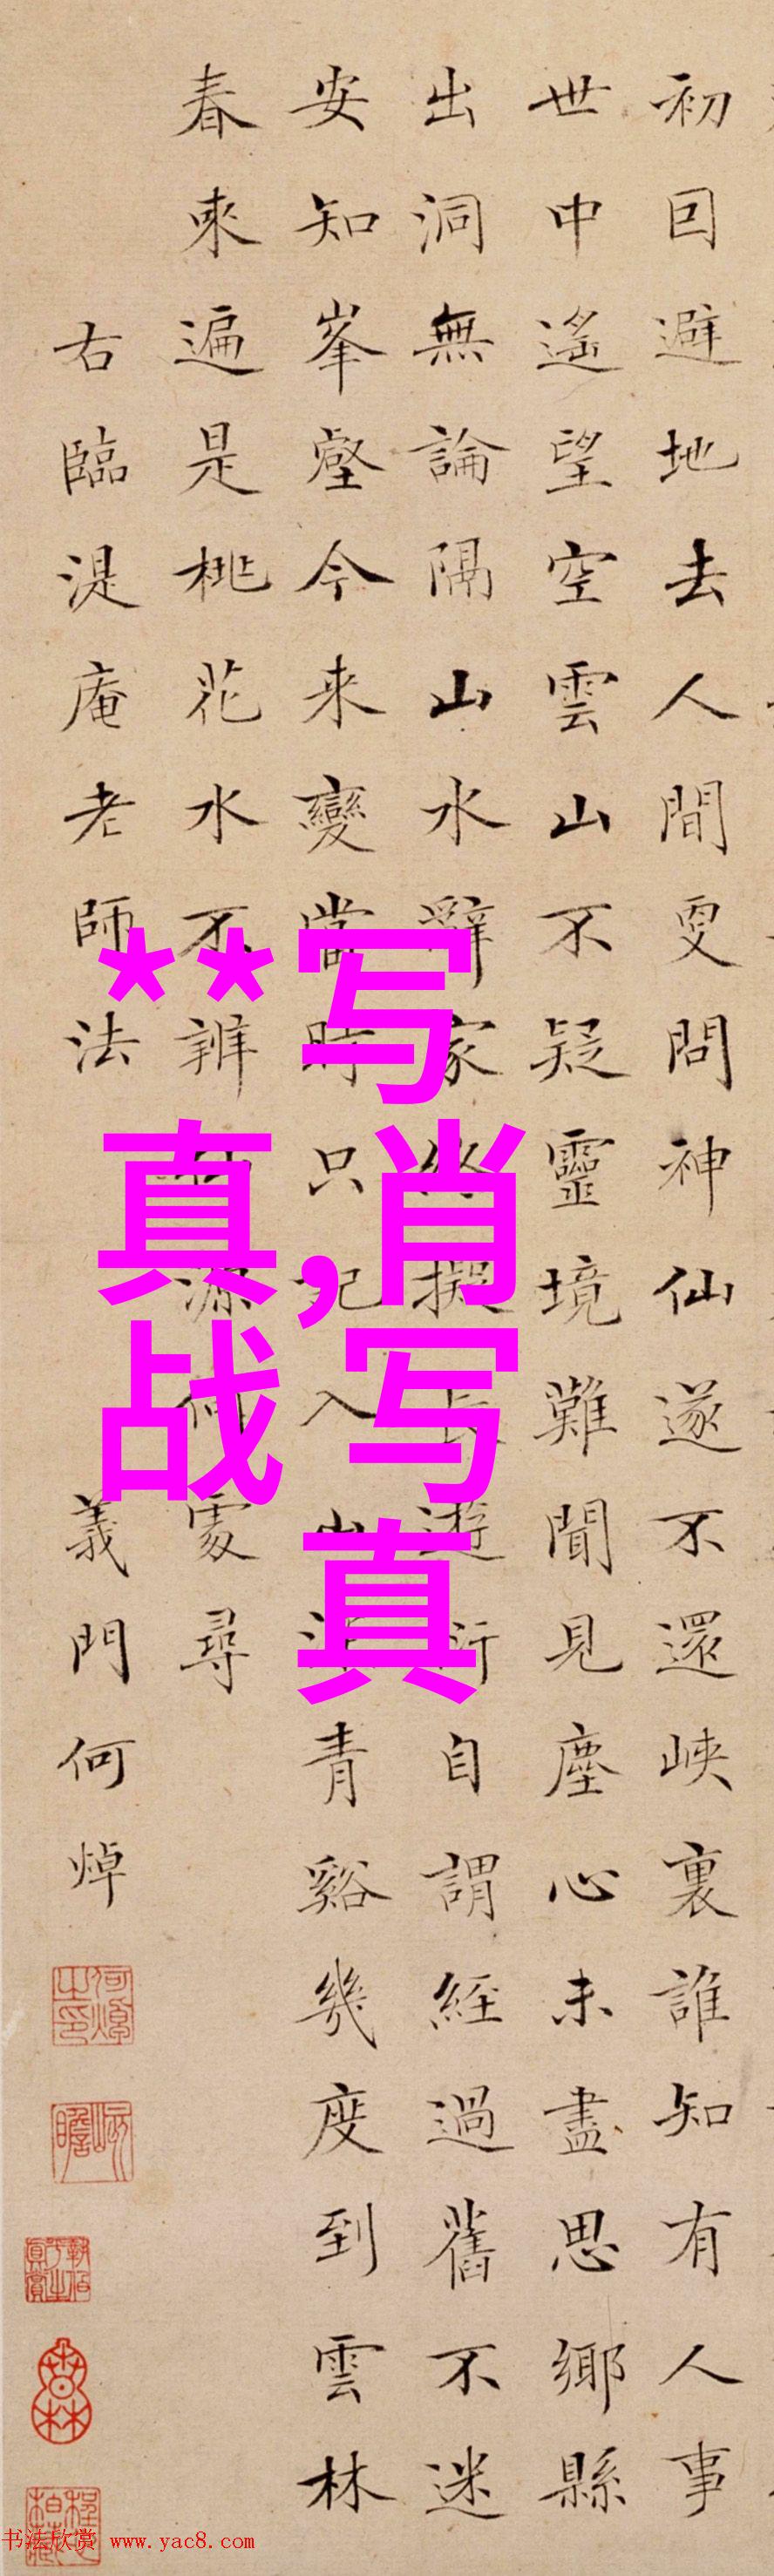 初囙避地去人間更問神仙遂不還峽裏誰知有人事
世中遙望空雲山不疑靈境難聞見塵心未盡思鄉縣
出洞無論隔山水辭家終擬長遊衍自謂經過舊不迷
安知峯壑今来變當時只記入山深青谿幾度到雲林
春來遍是桃花水不辨仙源何處尋
右臨湜庵老師法 義門何焯
何焯之印
屺瞻
**写
真,肖
战 写
真
书法欣赏 www.yac8.com